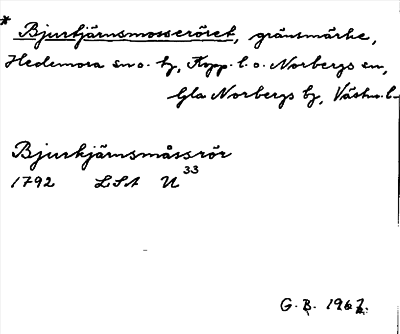 * Bjurtjärnsmosseröret, gränsmärke,
Hedemora sn o. hg, Kopp. l. o. Norbergs sn,
Gla Norbergs bg, Västm. l.
Bjurkjärnsmåssrör
1792 LSA U 33
G. B. 1967.